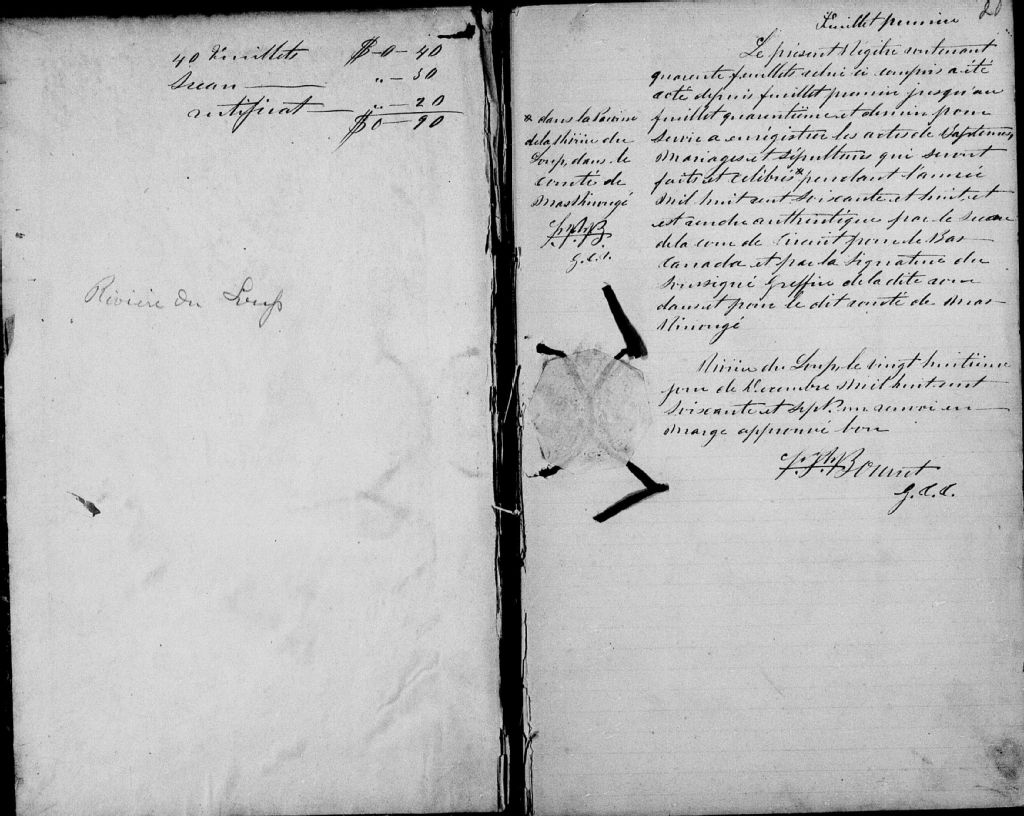 40 Feuillets $0-40
Sceau ,,-30
certificat ,,-20
$0-90
Rivière du Loup
20
Feuillet premier
Le présent Régitre contenant
quarente feuillets celui ci compris a été
coté depuis feuillet premier jusqu'au
feuillet quarentième et dernier pour
servir a enrégistrer les actes de Baptemes
Mariages et Sépultures qui seront
faits et célébrés * pendant l'année
Mil huit cent soixante et huit, et
est rendu authentique par le Sceau
de la cour de Circuit pour le Bas
Canada et par la signature du
soussigné Greffier de la dite cour
dans et pour le dit comté de Mas-
kinongé
* dans la Paroisse
de la Rivière du
Loup, dans le
comté de
Maskinongé
G.C.C.
Rivière du Loup le vingt huitième
jour de Décembre Mil huit cent
soixante et sept. un renvoi en
marge approuvé bon
G.C.C.